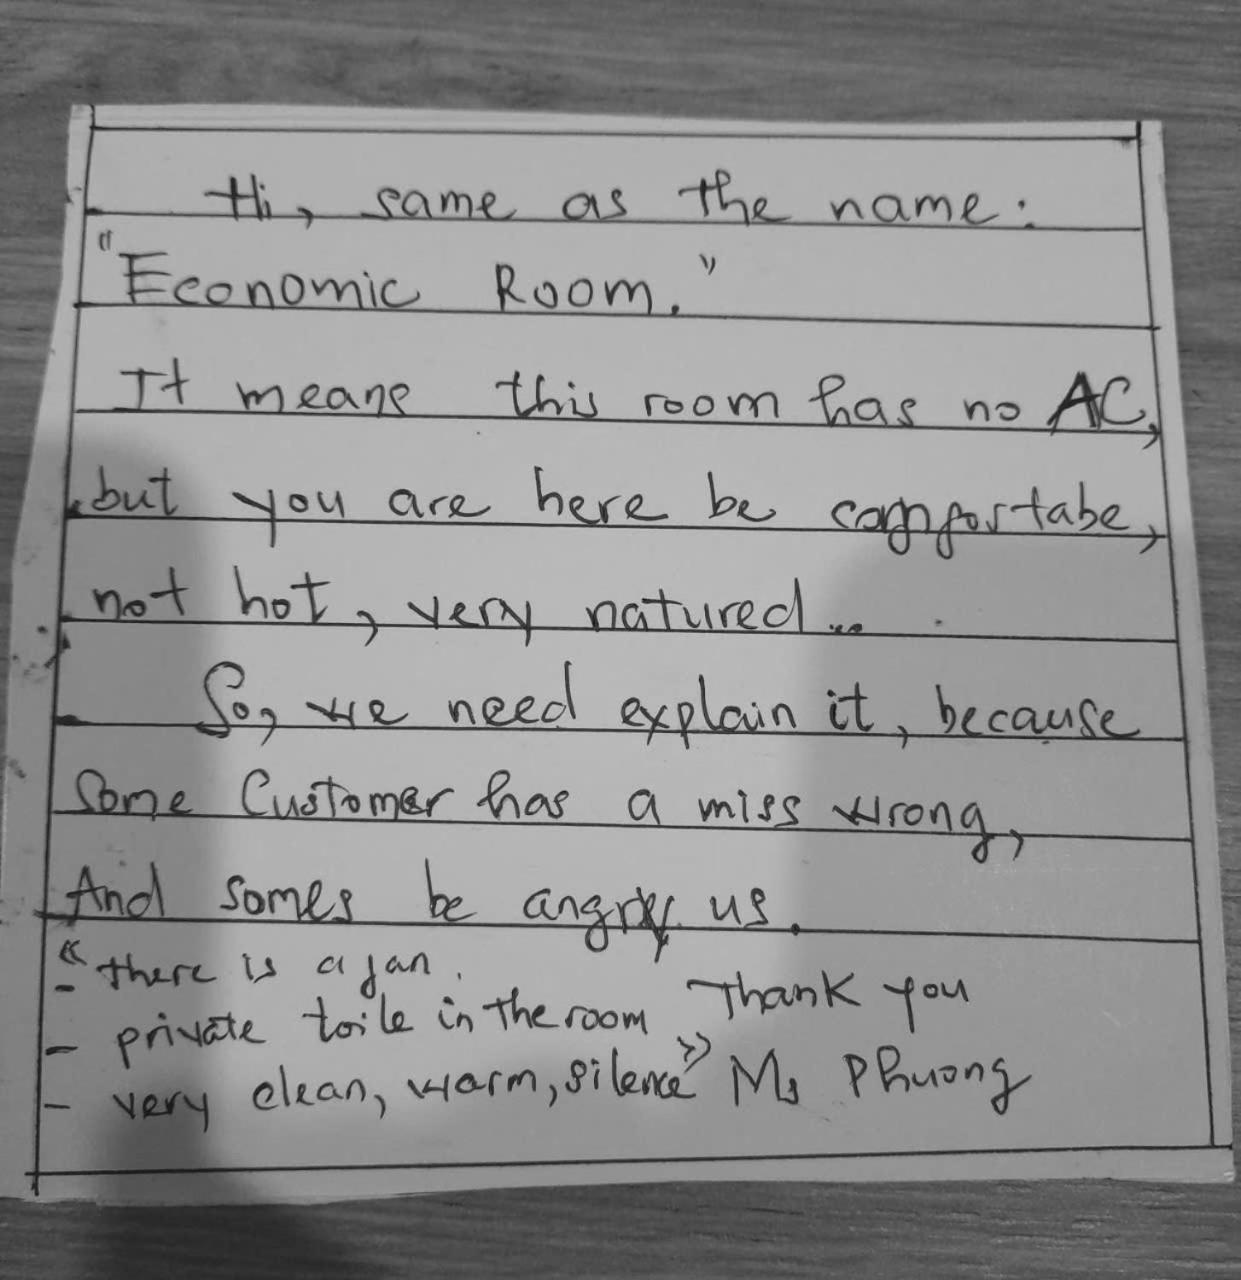 Hi, same as the name:
"Economic Room."
It means this room has no AC,
but you are here be comfortabe,
not hot, very natured...
So, we need explain it, because
Some Customer has a miss wrong,
And somes be angry us.
"- there is a fan.
- private toile in the room Thank you
- very clean, warm, silence" Ms Phuong